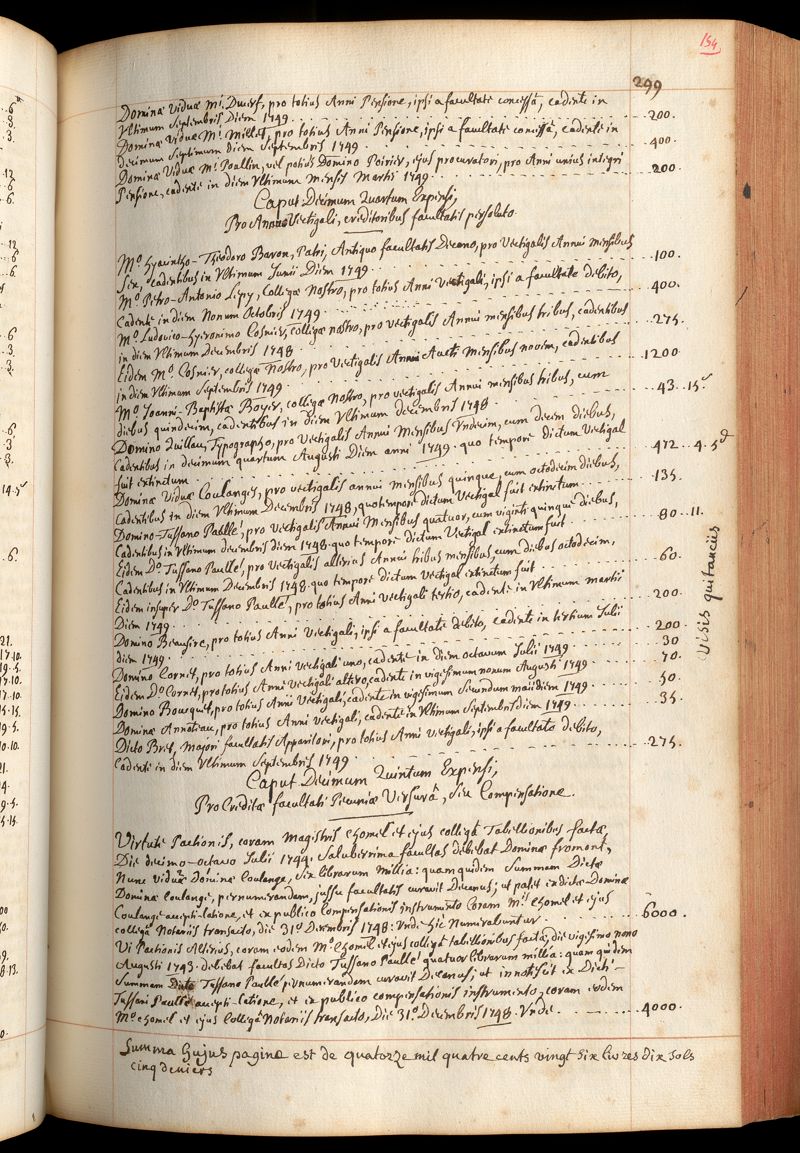 154
299
Dominæ Viduæ Mi. Dwerf, pro totius Anni Pensione, ipsi a facultate concessâ, cadente in
Ultimum Septembris Diem 1749 . . . 200.
Dominæ Viduæ Mi. Millet, pro totius Anni Pensione, ipsi a facultate concessâ, cadente in
decimum Septimum Diem Septembris 1749 . . . 400
Dominæ Viduæ Mi. Poallin, vel potius Domino Poirier, ejus procuratori, pro Anni unius integri
Pensione, cadente in diem Ultimum Mensis Martis 1749 . . . 200
Caput Decimum Quartum Expensi,
Pro Annuo Vectigali, creditoribus facultatis persoluto.
Mo. Hyacintho-Theodoro Baron, Patri, Antiquo facultatis Decano, pro Vectigalis Annui mensibus
Sex, Cadentibus in Ultimum Junii Diem 1749 . . . 100.
Mo. Petro-Antonio Lepy, Collegæ Nostro, pro totius Anni Vectigali, ipsi a facultate debito,
Cadente in diem Nonum Octobris 1749 . . . 400.
Mo. Ludovico-Hyeronimo Cosnier, collegæ nostro, pro vectigalis Annui mensibus tribus, cadentibus
in diem Ultimum Decembris 1748 . . . 275.
Eidem Mo. Cosnier, collegæ Nostro, pro Vectigalis Annui Aucti Mensibus novem, cadentibus
in diem Ultimum Septembris 1749 . . . 1200
Mo. Joanni-Baptistæ Boyer, collegæ Nostro, pro vectigalis Annui mensibus tribus, cum
diebus quindecim, cadentibus in diem Ultimum decembris 1748 . . . 43. 15s
Domino Quillau, Typographo, pro Vectigalis Annui Mensibus Undecim, cum Decem diebus,
Cadentibus in decimum quartum Augusti Diem anni 1749. quo tempore dictum Vectigal
fuit extinctum . . . 472. 4. 5d
Dominæ Viduæ Coulanges, pro vectigalis annui mensibus quinque, cum octodecim diebus,
cadentibus in diem Ultimum Decembris 1748, quo tempore dictum Vectigal fuit extinctum . . . 135.
Domino Tussano Paulle, pro Vectigalis Annui Mensibus quatuor, cum viginti quinque diebus,
Cadentibus in Ultimum decembris diem 1748. quo tempore dictum Vectigal extinctum fuit . . . 80. 11.
Eidem Do. Tussano Paulle, pro vectigalis alterius Annui tribus mensibus, cum diebus octodecim,
Cadentibus in Ultimum Decembris 1748. quo tempore dictum vectigal extinctum fuit . . . 60.
Eidem insuper Do. Tussano Paulle, pro totius Anni Vectigali tertio, cadente in Ultimum martii
Diem 1749 . . . 200.
Domino Beausire, pro totius Anni Vectigali, ipsi a facultate debito, cadente in tertium Julii
diem 1749 . . . 200.
Domino Cornet, pro totius Anni vectigali uno, cadente in diem octavum Julii 1749 . . . 30
Eidem Do. Cornet, pro totius Anni vectigali altero, cadente in vigesimum nonum Augusti 1749 . . . 70.
Domino Bouquet, pro totius Anni Vectigali, cadente in vigesimum Secundum maii diem 1749 . . . 50.
Dominæ Annoteau, pro totius Anni vectigali, cadente in Ultimum Septembris diem 1749 . . . 35.
Dicto Bret, Majori facultatis Apparitori, pro totius Anni Vectigali, ipsi a facultate debito,
Cadente in diem Ultimum Septembris 1749 . . . 275.
Visis quitanciis
Caput Decimum Quintum Expensi,
Pro Creditæ facultati Pecuniæ Versurâ, seu Compensatione.
Virtute Pactionis, coram Magistris Chomel et ejus collegâ Tabellionibus factæ,
Die decimo-octavo Julii 1744. Saluberrima facultas debebat Dominæ Fromont,
Nunc viduæ Dominæ Coulange, Sex librarum Millia: quam quidem Summam Dictæ
Dominæ Coulange, pernumerandam, jussu facultatis curavit Decanus; ut patet ex dictæ Dominæ
Coulange accepti-latione, et ex publico compensationis instrumento Coram Mis. Chomel et ejus
collegâ Notariis transacto, die 31o. Decembris 1748. Unde hic Numerabuntur . . . 6000.
Vi Pactionis Alterius, coram eodem Mo. Chomel et ejus collegâ tabellionibus factæ, die vigesimo nono
Augusti 1743. debebat facultas Dicto Tussano Paulle quatuor librarum millia: quam quidem
Summam Dicto Tussano Paulle pernumerandam curavit Decanus; ut innotescit ex Dicti
Tussani Paulle accepti-latione, et ex publico compensationis instrumento, coram eodem
Mo. Chomel et ejus Collegâ Notariis transacto, Die 31o. Decembris 1748. Unde . . . 4000.
Summa hujus paginæ est de quatorze mil quatre cents vingt six livres dix sols
cinq deniers